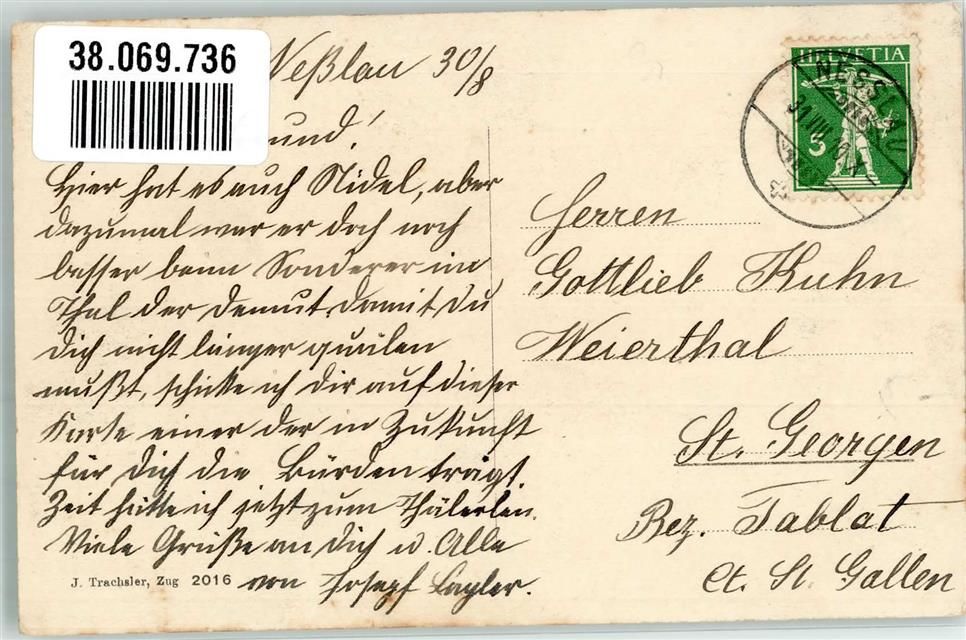 38.069.736
Neßlau 30/8
und!
Hier hat es auch Nidel, aber
dazumal war er doch noch
besser beim Sonderer im
Thal der Demut. Damit Du
Dich nicht länger quälen
mußt, schicke ich Dir auf dieser
Karte einer der in Zukunft
für Dich die Bürden trägt.
Zeit hätte ich jetzt zum
Viele Grüße an Dich u. Alle
von Josef
J. Trachsler, Zug 2016
HELVETIA
5
NESSLAU
31.VIII
Herren
Gottlieb Kuhn
Weierthal
St. Georgen
Bez. Tablat
Ct. St. Gallen